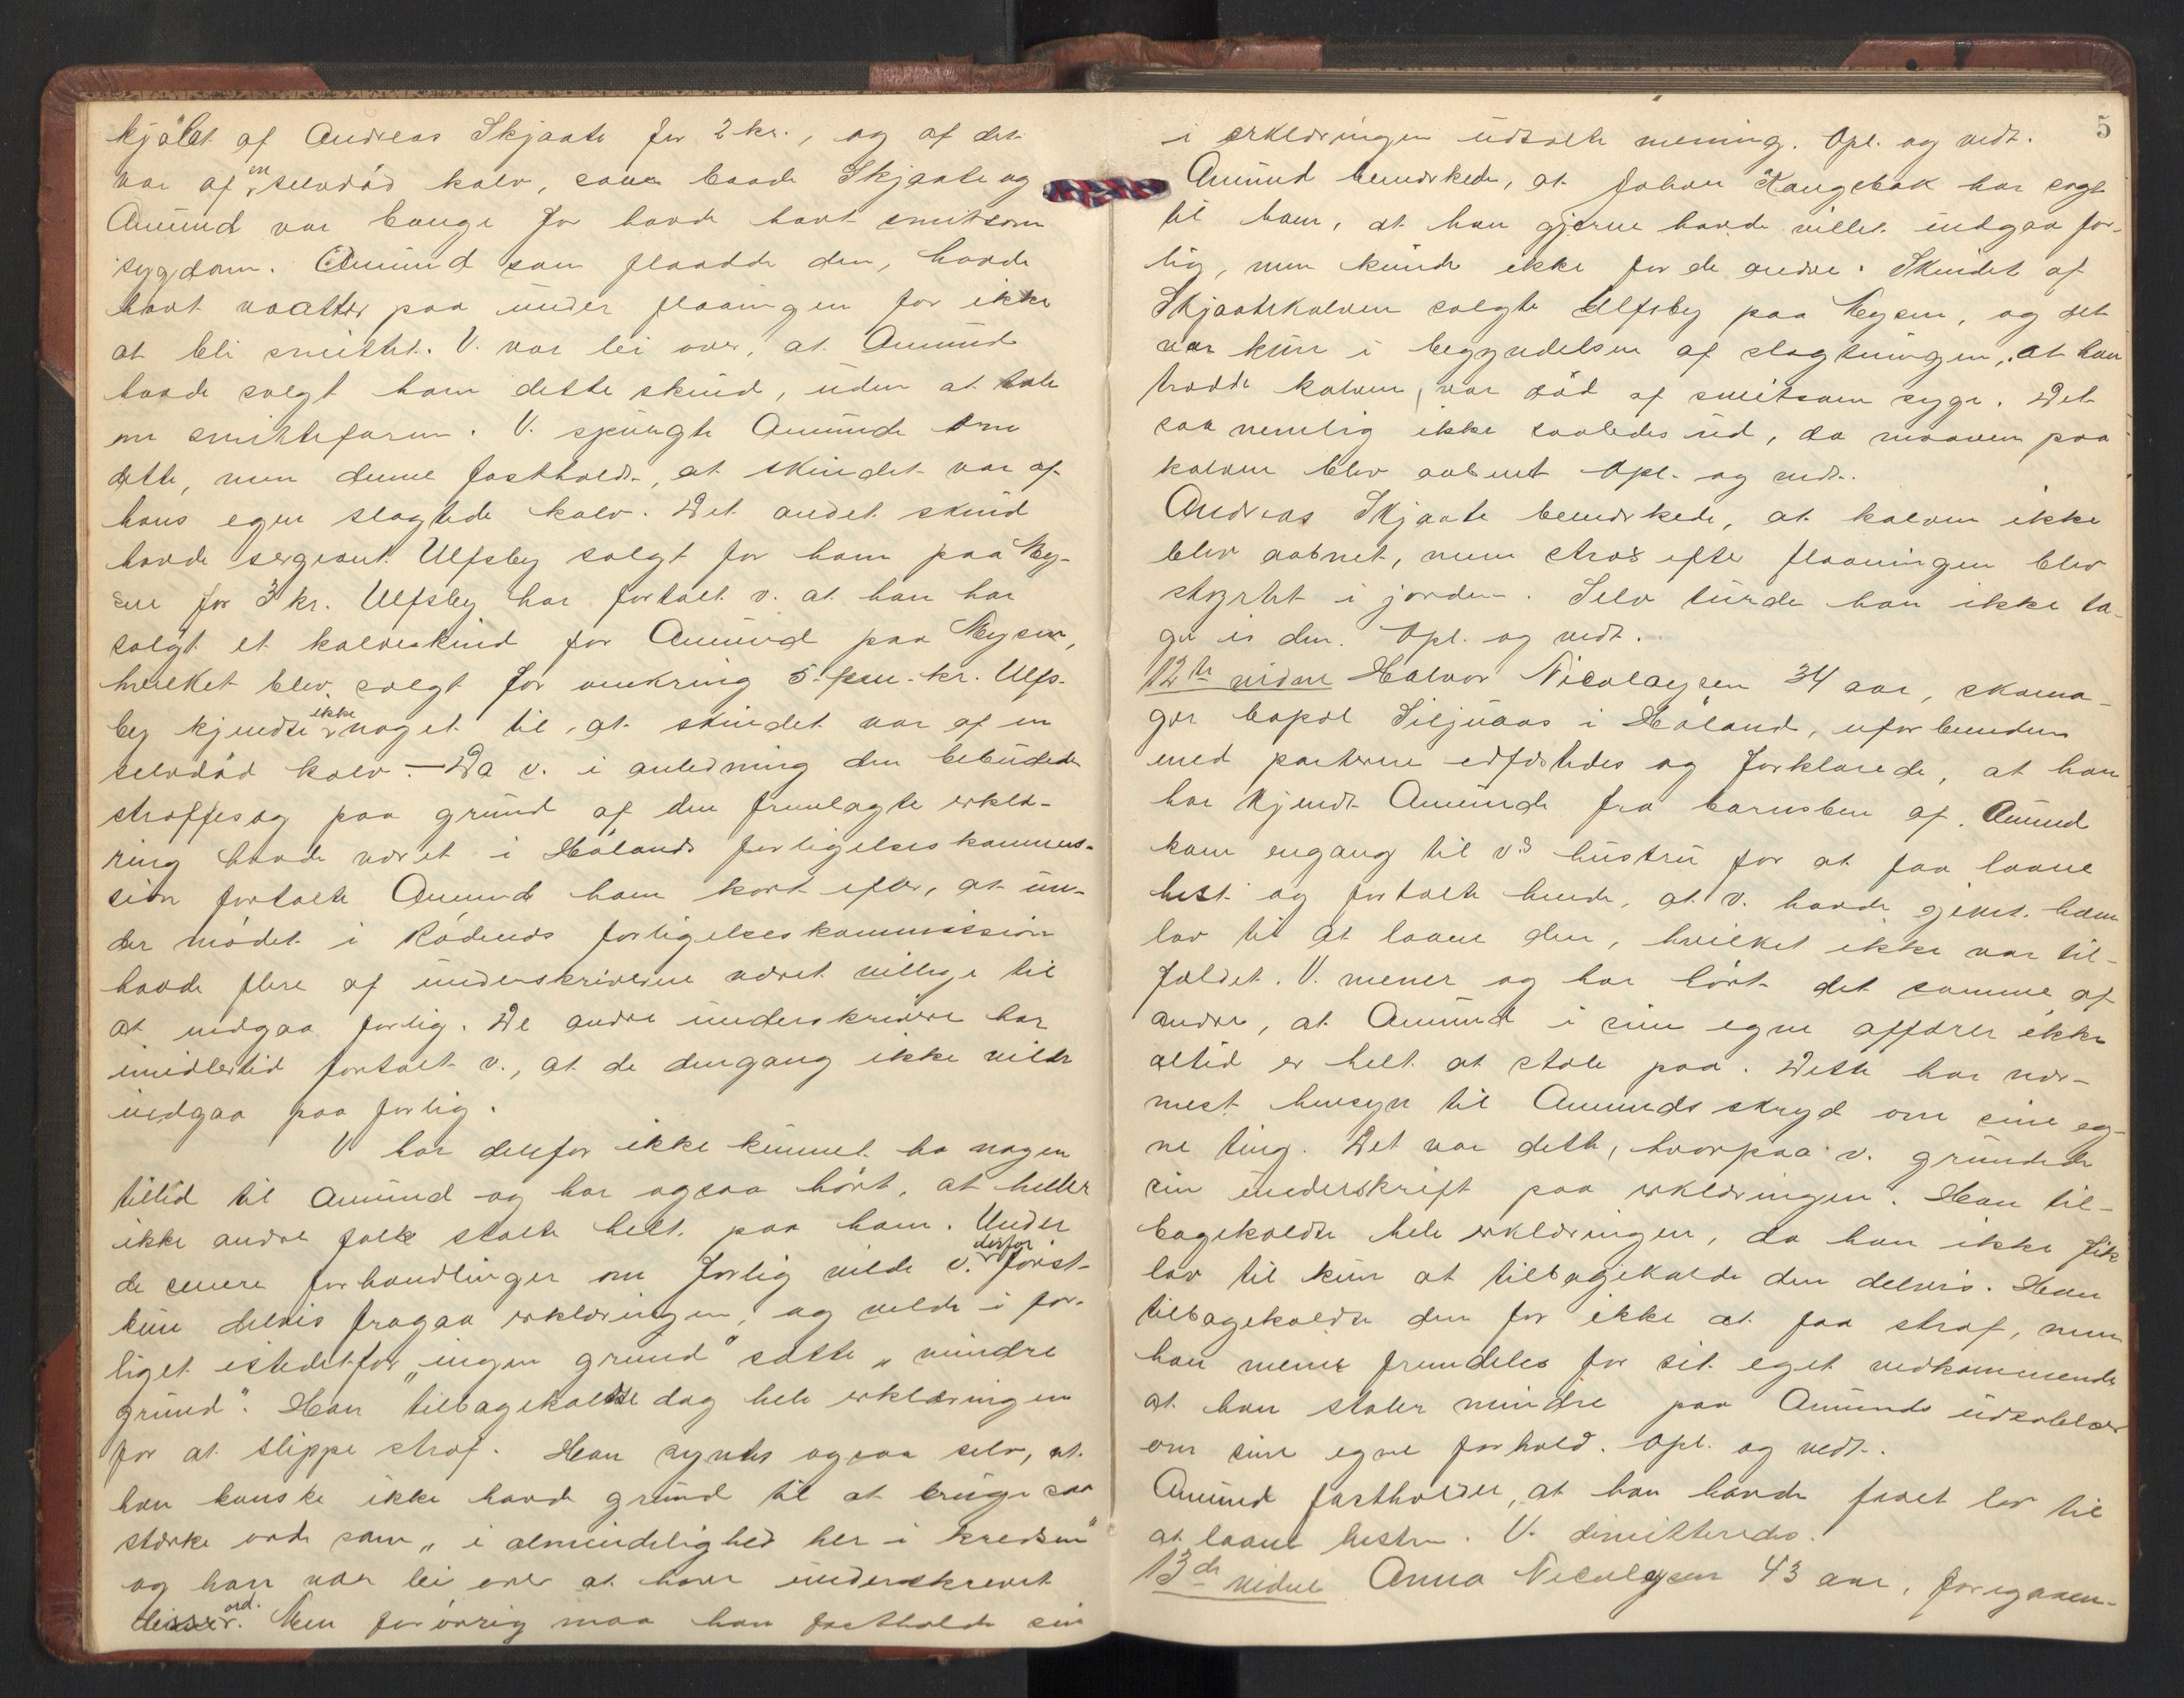 kjøbt af Andreas Skjaate for 2 kr., og af det
var af en selvdød kalv, som baade Skjaate og
Amund var bange for havde havt smitsom
sygdom. Amund som flaadde den, havde
havt vaatter paa under flaaingen for ikke
at bli smittet. V. var lei over, at Amund
havde solgt ham dette skind, uden at tale
om smittefaren. V. spurgte Amund om
dette, men denne fastholdt, at skindet var af
hans egen slagtede kalv. Det andet skind
havde sergeant Ulfsby solgt for ham paa My-
sen for 3 kr. Ulfsby har fortalt v. at han har
solgt et kalveskind for Amund paa Mysen,
hvilket blev solgt for omkring 5-fem-kr. Ulfs-
by kjendte ikke noget til, at skindet var af en
selvdød kalv. — Da v. i anledning den bebudede
straffesag paa grund af den fremlagte erklæ-
ring havde været i Hølands forligelseskommis-
sion fortalte Amund ham kort efter, at un-
der mødet i Rødenes forligelseskommission
havde flere af underskriverne været villige til
at indgaa forlig. De andre underskrivere har
imidlertid fortalt v., at de dengang ikke vilde
indgaa paa forlig.
V. har derfor ikke kunnet ha nogen
tillid til Amund og har ogsaa hørt, at heller
ikke andre folk stolte helt paa ham. Under
de senere forhandlinger om forlig vilde v. derfor først
kun delvis fragaa erklæringen, og vilde i for-
liget istedetfor „ingen grund" satte „mindre
grund". Han tilbagekaldte dog hele erklæringen
for at slippe straf. Han syntes ogsaa selv, at
han kanske ikke havde grund til at bruge saa
stærke ord som „i almindelighed her i kredsen"
og han var lei over at have underskrevet
disse ord. Men forøvrig maa han fastholde sin
5
i erklæringen udtalte mening. Opl. og vedt.
Amund bemerkede, at Johan Kangsbak har sagt
til ham, at han gjerne havde villet indgaa for-
lig, men kunde ikke for de andre. Skindet af
Skjaatekalven solgte Ulfsby paa Mysen, og det
var kun i begyndelsen af slagtningen, at han
trodde kalven var død af smitsom syge. Det
saa nemlig ikke saaledes ud, da maaven paa
kalven blev aabnet. Opl. og vedt.
Andreas Skjaate bemerkede, at kalven ikke
blev aabnet, men straks efter flaaningen blev
styrtet i jorden. Selv turde han ikke ta-
ge i den. Opl. og vedt.
12te vidne Halvor Nicolaysen 34 aar, skoma-
ger bopæl Siljuaas i Høland, uforbunden
med parterne edfæstedes og forklarede, at han
har kjendt Amund fra barnsben af. Amund
kom engang til v's hustru for at faa laane
hest og fortalte hende, at v. havde givet ham
lov til at laane den, hvilket ikke var til-
fældet. V. mener og har hørt det samme af
andre, at Amund i sine egne affærer ikke
altid er helt at stole paa. Dette har nær-
mest hensyn til Amunds skryd om sine eg-
ne ting. Det var dette, hvorpaa v. grundede
sin underskrift paa erklæringen. Han til-
bagekaldte hele erklæringen, da han ikke fik
lov til kun at tilbagekalde den delvis. Han
tilbagekaldte den for ikke at faa straf, men
han mener fremdeles for sit eget vedkommende
at han stoler mindre paa Amunds udtalelser
om sine egne forhold. Opl. og vedt.
Amund fastholder, at han havde faaet lov til
at laane hesten. V. dimitteredes.
13de vidne Anna Nicolaysen 43 aar, foregaaen-